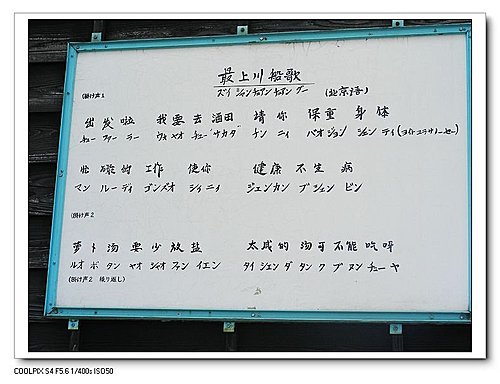 最上川船歌
ズイ シャン チュアン チュアン グー (北京語)
(掛け声1
出发啦 我要去酒田 请你 保重 身体
チュー ファー ラー ウォ ヤオ チュー サカダ チン ニィ バオ ジョン シェン ティ (ヨイトコラサノーセー)
忙碌的 工作 使你 健康 不生 病
マン ルーディ ゴンズオ シィ ニィ ジェンカン ブ シェン ビン
(掛け声2
萝卜 汤 要 少 放 盐 太咸的 汤可不能吃呀
ルオ ボ タン ヤオ シャオ ファン イエン タイ シェン ダ タン ク ブ ヌン チュー ヤ
(掛け声2 繰り返し)
COOLPIX S4 F5.6 1/400s ISO50